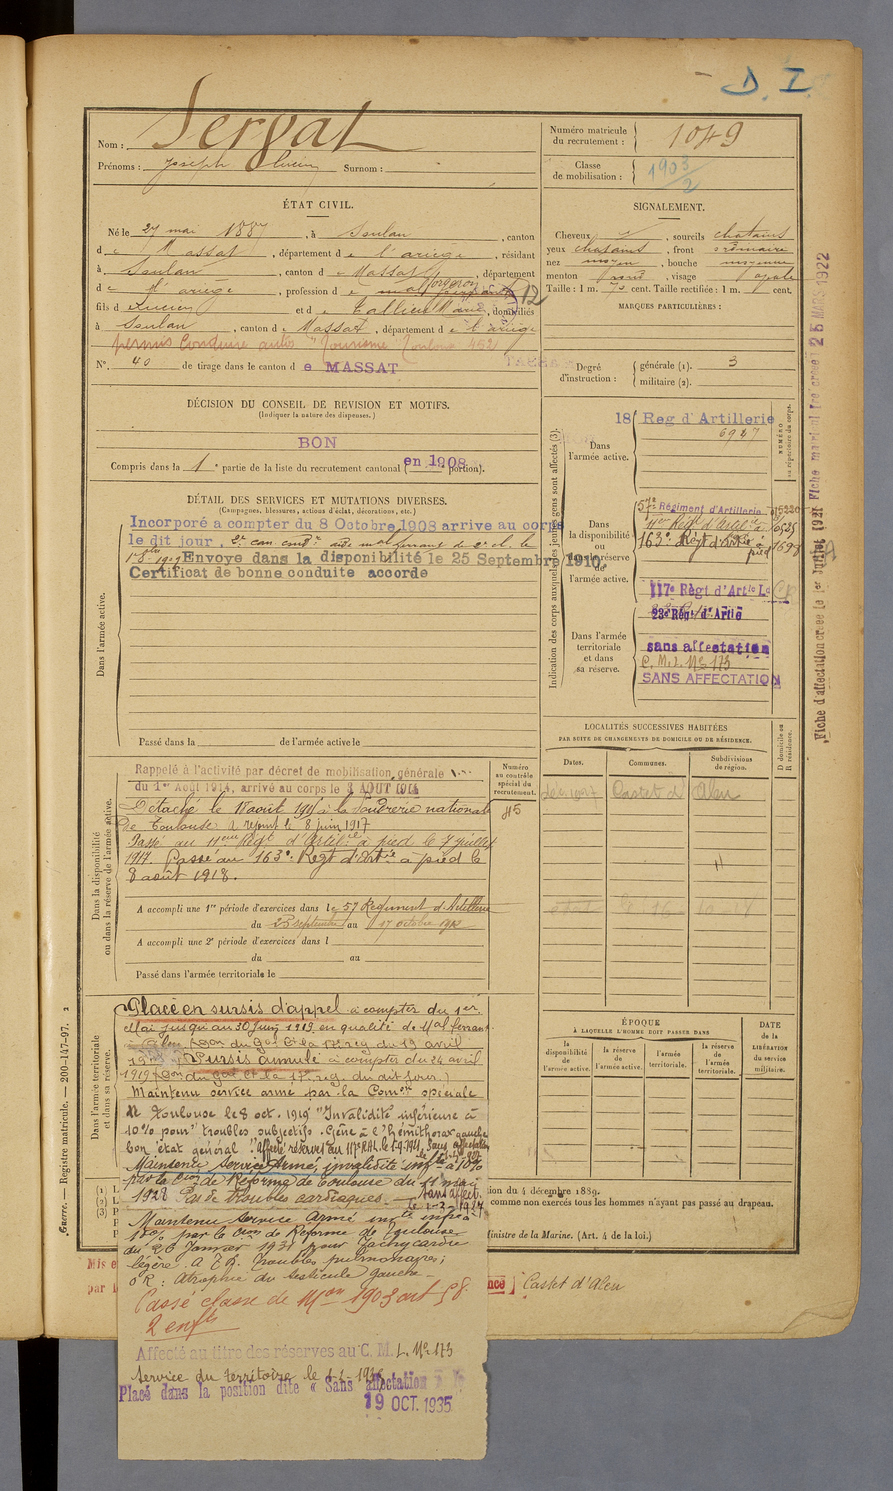 D. I.
Nom : Sergat
Prénoms : Joseph Lucien Surnom :
Numéro matricule du recrutement : 1049
Classe de mobilisation : 1903/2
ÉTAT CIVIL.
Né le 27 mai 1887, à Soulan, canton
de Massat, département de l'ariège, résidant
à Soulan, canton de Massat, département
de l'ariège, profession de forgeron
fils de Lucien et de Marie, domiciliés
à Soulan, canton de Massat, département de l'ariège
12
permis conduire autos Tourisme Toulouse 452
N° 40 de tirage dans le canton de MASSAT
SIGNALEMENT.
Cheveux , sourcils chatains
yeux chatains, front ordinaire
nez moyen, bouche moyenne
menton rond, visage ovale
Taille : 1 m. cent. Taille rectifiée : 1 m. cent.
MARQUES PARTICULIÈRES :
Degré d'instruction : générale (1). 3
militaire (2).
DÉCISION DU CONSEIL DE REVISION ET MOTIFS.
(Indiquer la nature des dispenses.)
BON
Compris dans la 1e partie de la liste du recrutement cantonal (en 1908 portion).
DÉTAIL DES SERVICES ET MUTATIONS DIVERSES.
(Campagnes, blessures, actions d'éclat, décorations, etc.)
Dans l'armée active.
Incorporé a compter du 8 Octobre 1908 arrive au corps
le dit jour,
Envoye dans la disponibilité le 25 Septembre 1910.
Certificat de bonne conduite accorde
Passé dans la de l'armée active le
Indication des corps auxquels les jeunes gens sont affectés (3).
NUMÉRO au répertoire du corps.
Dans l'armée active.
18 Reg d'Artillerie
6927
Dans la disponibilité ou dans la réserve de l'armée active.
57e Régiment d'Artillerie
11er Régt d'Artil à
163e Régt d'Artie à pied
117e Régt d'Artie Lde
23e Rég. d'Artie
Dans l'armée territoriale et dans sa réserve.
sans affectation
C. M. L. No 173
SANS AFFECTATION
Fiche d'affectation créée le 1er Juillet 1921 Fiche matricule créée 25 MARS 1922
LOCALITÉS SUCCESSIVES HABITÉES
PAR SUITE DE CHANGEMENTS DE DOMICILE OU DE RÉSIDENCE.
Dates. Communes. Subdivisions de région. D domicile ou R résidence.
Castet d'Aleu
Dans la disponibilité ou dans la réserve de l'armée active.
Numéro au contrôle spécial du recrutement.
Rappelé à l'activité par décret de mobilisation générale
du 1er Août 1914, arrivé au corps le 3 AOUT 1914
Détaché le 18 août 1915 à la Poudrerie nationale
de Toulouse le 8 juin 1917
Passé au 11eme Régt d'Artillie à pied le 7 juillet
1917. Passé au 163e Régt d'Artie à pied le
8 août 1918.
A accompli une 1re période d'exercices dans le 57 Regiment d'Artillerie
du 25 septembre au 17 octobre 1912
A accompli une 2e période d'exercices dans l
du au
Passé dans l'armée territoriale le
Dans l'armée territoriale et dans sa réserve.
Placé en sursis d'appel à compter du 1er
Mai jusqu'au 30 juin 1919 en qualité de Mal ferrant
à Aleu. (Don du Gal Ct la 17e rég. du 19 avril
1919) Sursis annulé à compter du 24 avril
1919 (Don du Gal Ct la 17e rég. du dit jour.)
Maintenu service armé par la Comon spéciale
de Toulouse le 8 oct. 1919 "Invalidité inférieure à
10% pour" troubles subjectifs. Gêne à l'hémithorax gauche
bon état général". Affecté réserves au 117e RAL. le 1-9-1921. Sans affectation
Maintenu service Armé, invalidité infre à 10%
par la Con de Réforme de Toulouse du 11 mai
1928 Pas de troubles cardiaques. Sans affect.
Maintenu service armé inv té infre à
10% par la Con de Réforme de Toulouse
du 20 Janvier 1931 pour Tachycardie
légère. troubles pulmonaires;
Atrophie du testicule gauche
Passé classe de Mon 1903 art 58
2 enfts
Affecté au titre des réserves au C. M. L. No 173
Service du territoire le
Placé dans la position dite « Sans affectation »
19 OCT. 1935
ÉPOQUE
À LAQUELLE L'HOMME DOIT PASSER DANS
la disponibilité de l'armée active. la réserve de l'armée active. l'armée territoriale. la réserve de l'armée territoriale.
DATE de la LIBÉRATION du service militaire.
ion du 4 décembre 1889.
comme non exercés tous les hommes n'ayant pas passé au drapeau.
inistre de la Marine. (Art. 4 de la loi.)
Castet d'Aleu
Guerre. — Registre matricule. — 200-147-97.